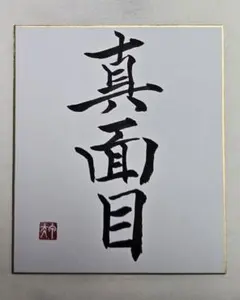 真面目